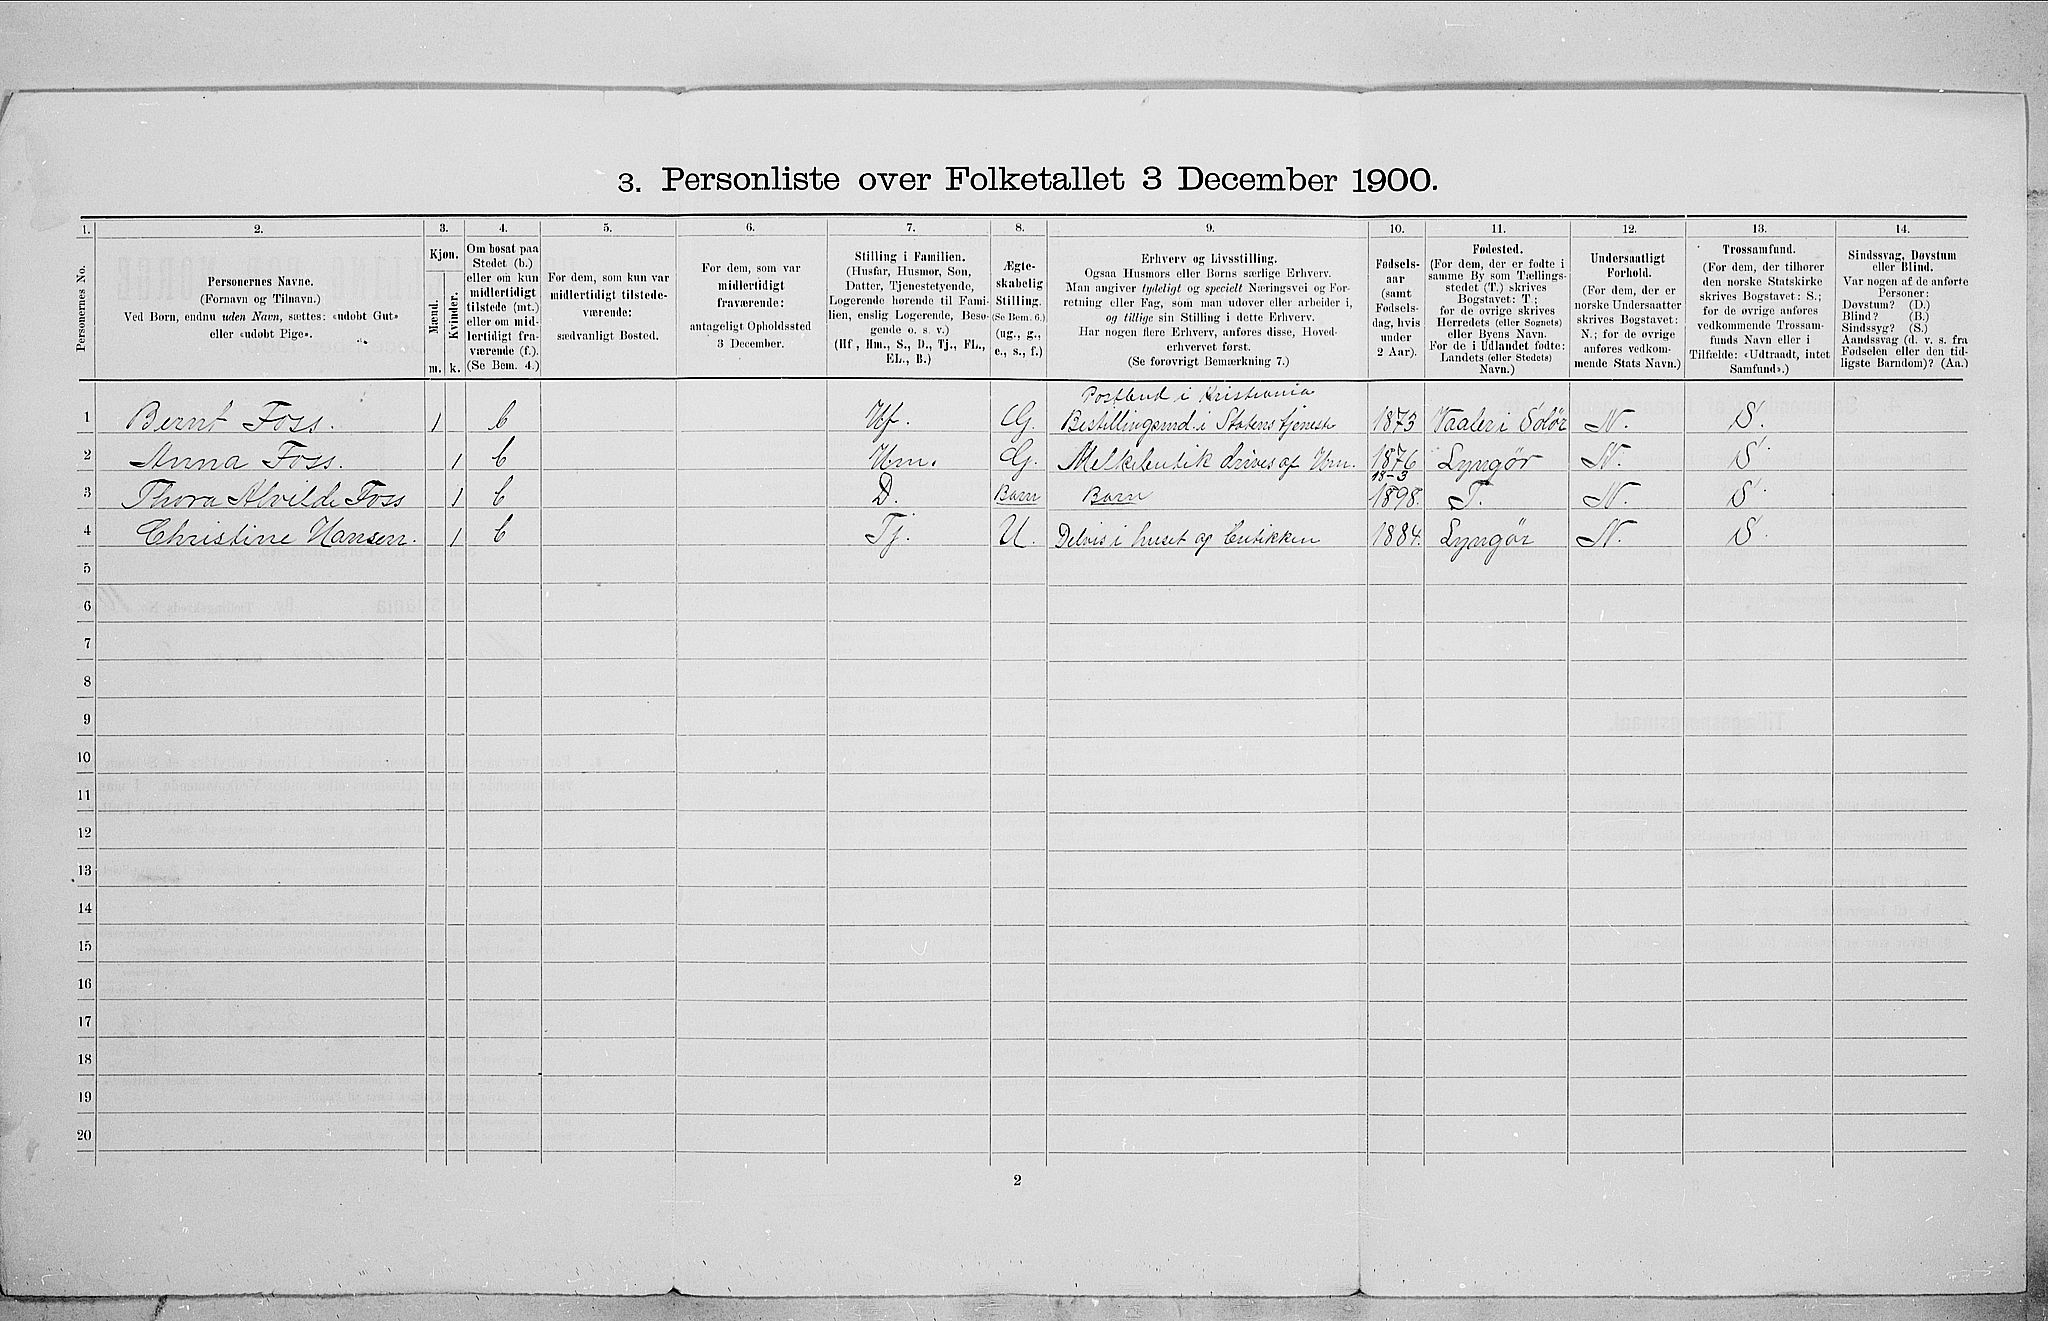 3. Personliste over Folketallet 3 December 1900.
1. 2. 3. 4. 5. 6. 7. 8. 9. 10. 11. 12. 13. 14.
Personernes No.
Personernes Navne.
(Fornavn og Tilnavn.)
Ved Børn, endnu uden Navn, sættes: «udøbt Gut»
eller «udøbt Pige».
Kjøn.
Mænd.
Kvinder.
m. k.
Om bosat paa
Stedet (b.)
eller om kun
midlertidigt
tilstede (mt.)
eller om mid-
lertidigt fra-
værende (f.).
(Se Bem. 4.)
For dem, som kun var
midlertidigt tilstede-
værende:
sædvanligt Bosted.
For dem, som var
midlertidigt
fraværende:
antageligt Opholdssted
3 December.
Stilling i Familien.
(Husfar, Husmor, Søn,
Datter, Tjenestetyende,
Logerende hørende til Fami-
lien, enslig Logerende, Besø-
gende o. s. v.)
(Hf., Hm., S., D., Tj., FL.,
EL., B.)
Ægte-
skabelig
Stilling.
(Se Bem. 6.)
(ug., g.,
e., s., f.)
Erhverv og Livsstilling.
Ogsaa Husmors eller Børns særlige Erhverv.
Man angiver tydeligt og specielt Næringsvei og For-
retning eller Fag, som man udøver eller arbeider i,
og tillige sin Stilling i dette Erhverv.
Har nogen flere Erhverv, anføres disse, Hoved-
erhvervet først.
(Se forøvrigt Bemærkning 7.)
Fødsels-
aar
(samt
Fødsels-
dag, hvis
under
2 Aar).
Fødested.
(For dem, der er fødte i
samme By som Tællings-
stedet (T.) skrives
Bogstavet: T;
for de øvrige skrives
Herredets (eller Sognets)
eller Byens Navn.
For de i Udlandet fødte:
Landets (eller Stedets)
Navn.)
Undersaatligt
Forhold.
(For dem, der er
norske Undersaatter
skrives Bogstavet:
N.; for de øvrige
anføres vedkom-
mende Stats Navn.)
Trossamfund.
(For dem, der tilhører
den norske Statskirke
skrives Bogstavet: S.;
for de øvrige anføres
vedkommende Trossam-
funds Navn eller i
Tilfælde: «Udtraadt, intet
Samfund».)
Sindssvag, Døvstum
eller Blind.
Var nogen af de anførte
Personer:
Døvstum? (D.)
Blind? (B.)
Sindssyg? (S.)
Aandssvag (d. v. s. fra
Fødselen eller den tid-
ligste Barndom)? (Aa.)
Postbud i Kristiania
1 Bernt Foss. 1 b Hf. G. Bestillingsmd. i Statens tjeneste 1873 Vaaler i Solør N. S.
2 Anna Foss. 1 b Hm. G. Melkebutik drives af Hm. 1876 Lyngør N. S.
18-3
3 Thora Alvilde Foss 1 b D. Barn Barn 1898. T. N. S.
4 Christine Hansen. 1 b Tj. U. Delvis i huset og butikken 1884. Lyngør N. S.
5
6
7
8
9
10
11
12
13
14
15
16
17
18
19
20
2